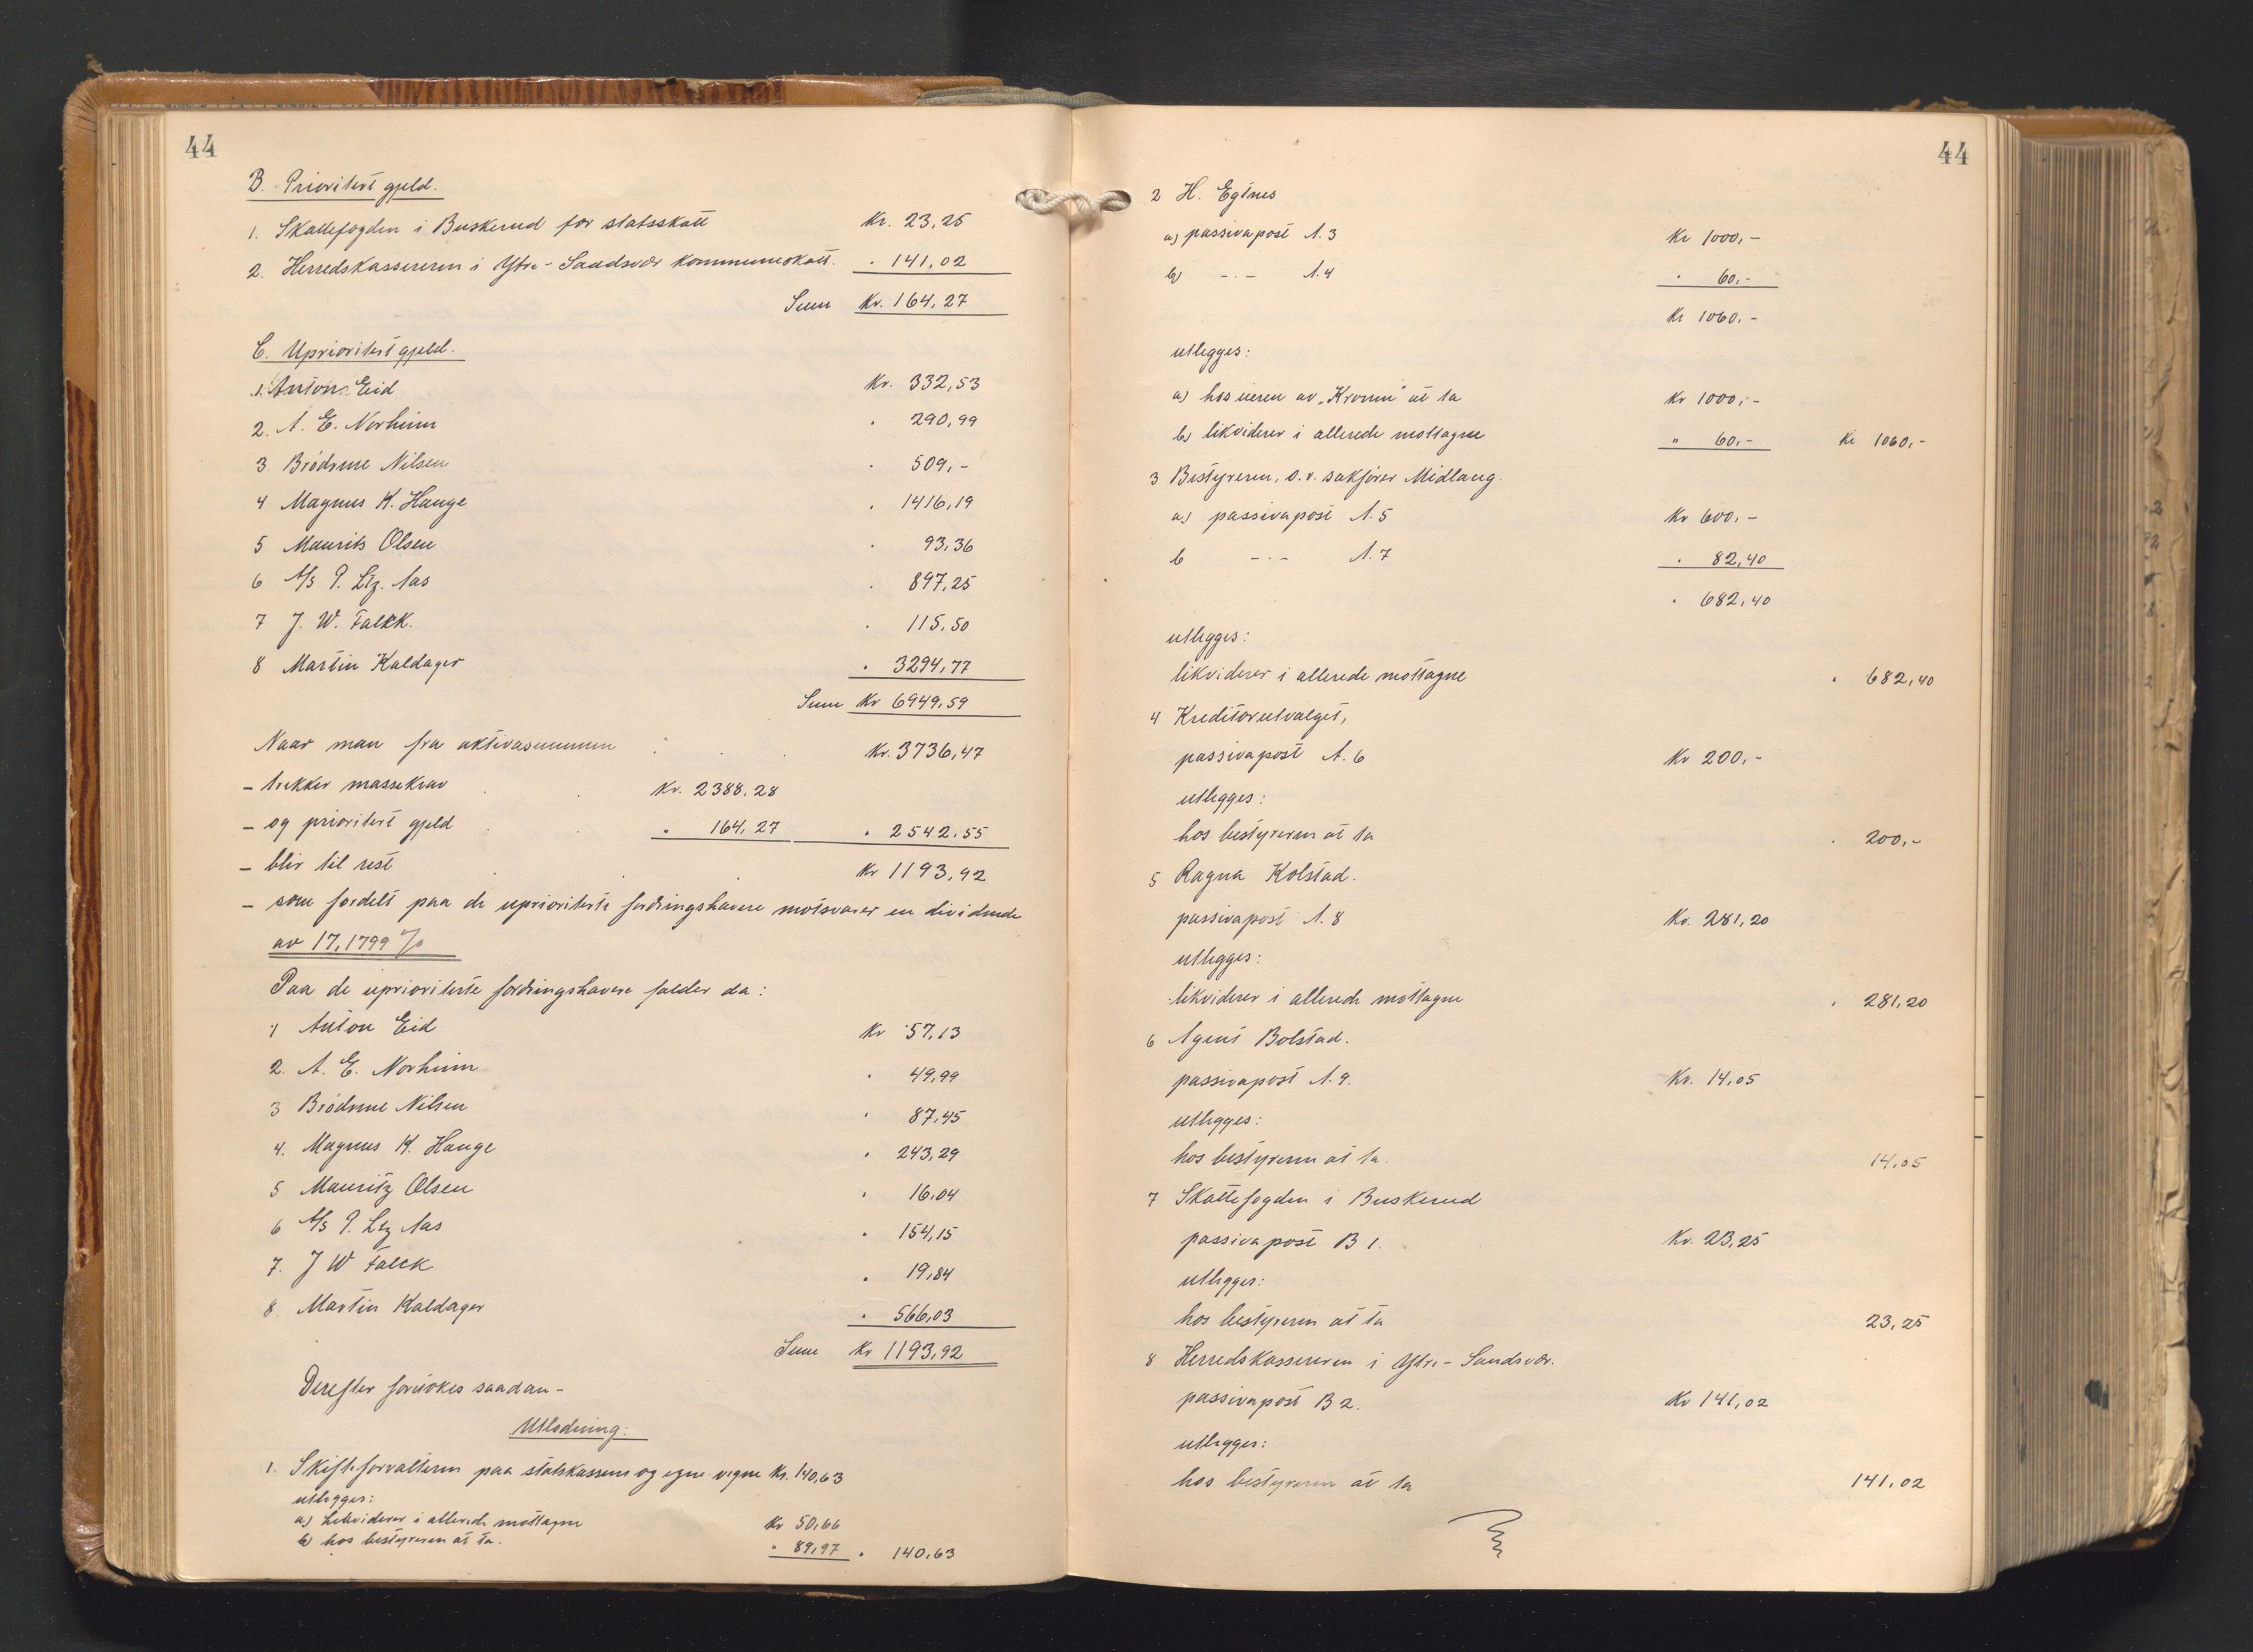 44
B. Prioritert gjeld.
1. Skattefogden i Buskerud for statsskatt Kr. 23,25
2. Herredskassereren i Ytre-Sandsvær kommuneskatt. " 141,02
Sum Kr. 164,27
C. Uprioritert gjeld.
1. Anton Eid Kr. 332,53
2. A. E. Norheim " 290,99
3 Brødrene Nilsen " 509,-
4 Magnus K. Hauge " 1416,19
5 Maurits Olsen " 93,36
6 A/s P. Ltz. Aas " 897,25
7 J. W. Falckk. " 115,50
8 Martin Kaldager " 3294,77
Sum Kr 6949,59
Naar man fra aktivasummen Kr. 3736,47
- trekker massekrav Kr. 2388,28
- og prioritert gjeld " 164,27 " 2542,55
- blir til rest Kr 1193,92
- som fordelt paa de uprioriterte fordringshavere motsvarer en dividende
av 17,1799 %
Paa de uprioriterte fordringshavere falder da:
1 Anton Eid Kr 57,13
2. A. E. Norheim " 49,99
3 Brødrene Nilsen " 87,45
4. Magnus K. Hauge " 243,29
5 Mauritz Olsen " 16,04
6 A/s P. Ltz Aas " 154,15
7. J W Falck " 19,84
8 Martin Kaldager " 566,03
Sum Kr 1193,92
Derefter foretokes saadan -
Utlodning:
1. Skifteforvalteren paa statskassens og egne vegne Kr. 140,63
utlegges:
a) Likviderer i allerede mottagne Kr 50,66
b) hos bestyreren at ta. " 89,97 " 140,63
44
2 H. Egtnes
a) passivapost A.3 Kr 1000,-
b) -"- A.4 " 60,-
Kr 1060,-
utlegges:
a) hos eieren av "Kronen" at ta Kr 1000,-
b) likviderer i allerede mottagne " 60,- Kr 1060,-
3 Bestyreren, o.r. sakfører Midlaug.
a) passivapost A.5 Kr 600,-
b -"- A.7 " 82,40
" 682,40
utlegges:
likviderer i allerede mottagne " 682,40
4 Kreditorutvalget,
passivapost A.6 Kr 200,-
utlegges:
hos bestyreren at ta " 200,-
5 Ragna Kolstad.
passivapost A.8 Kr. 281,20
utlegges:
likviderer i allerede mottagne " 281,20
6 Agent Bolstad.
passivapost A.9. Kr. 14,05
utlegges:
hos bestyreren at ta. 14,05
7 Skattefogden i Buskerud
passivapost B 1. Kr. 23,25
utlegges:
hos bestyreren at ta 23,25
8 Herredskassereren i Ytre-Sandsvær.
passivapost B 2. Kr 141,02
utlegges:
hos bestyreren at ta 141,02